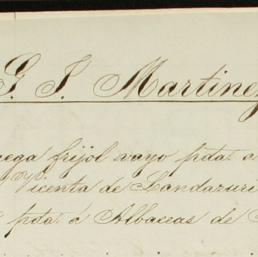 G. I. Martinez
nega frijol rayo ptda a
Vicenta de Landazuri
ptda á Albaceas de